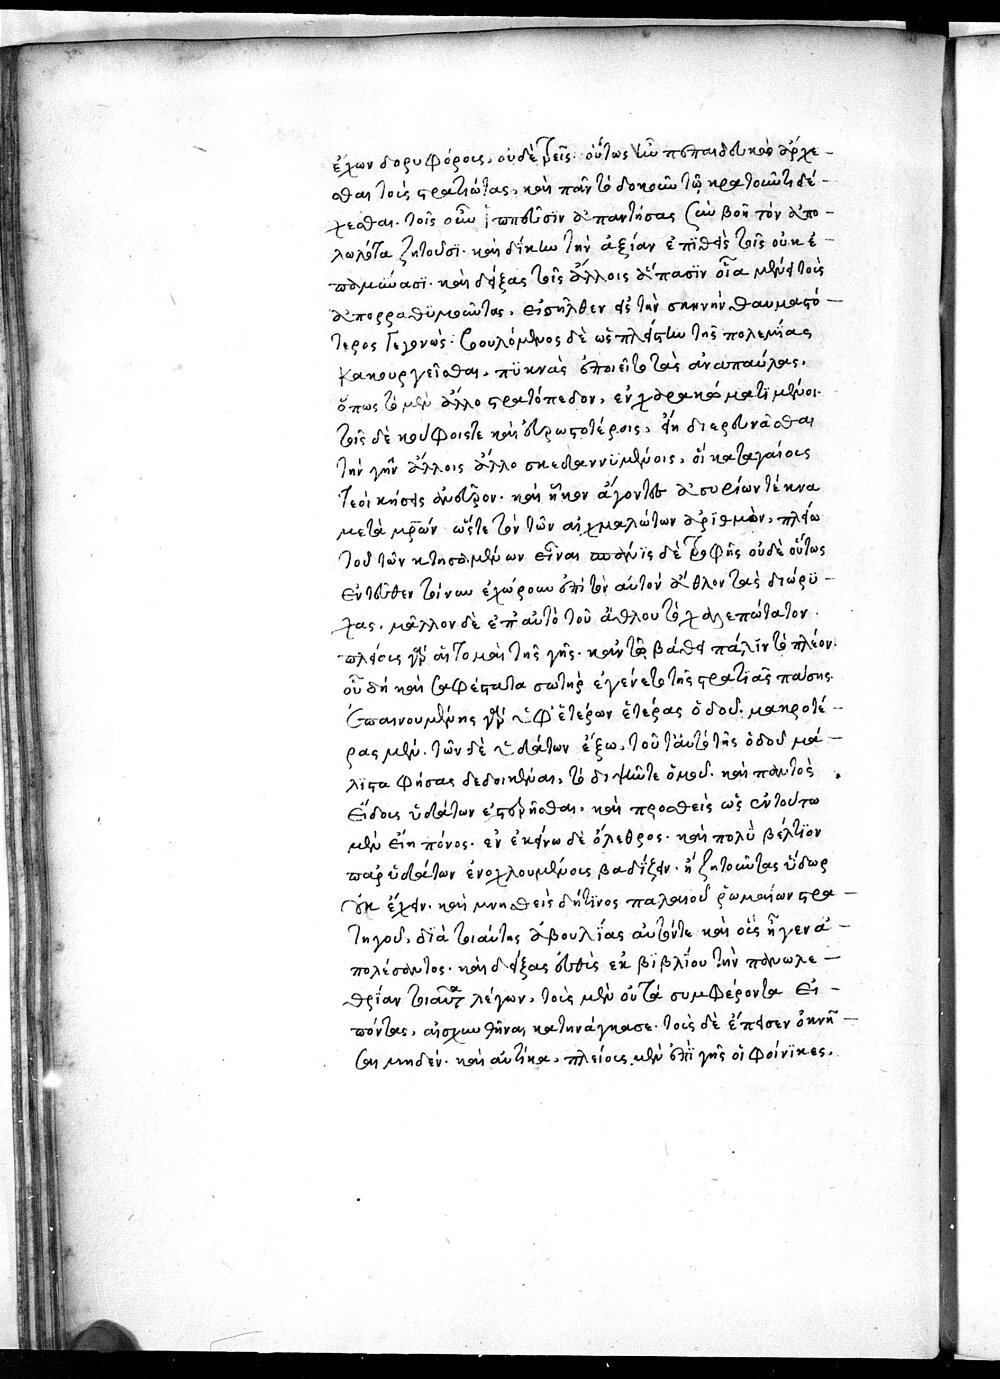 ἔχων δορυφόρους, οὐδὲ τρεῖς· οὕτως ἦν πεπαιδευκὼς ἄρχε–
σθαι τοὺς στρατιώτας, καὶ πᾶν τὸ δοκοῦν τῷ κρατοῦντι δέ–
χεσθαι. τοῖς οὖν ἱππεῦσιν ἀπαντήσας σὺν βοῇ τὸν ἀπο–
λωλότα ζητοῦσι. καὶ δίκην τὴν ἀξίαν ἐπιθεὶς τοῖς οὐκ ἐ–
πομένασι. καὶ δείξας τοῖς ἄλλοις ἅπασιν οἷα μένει τοὺς
ἀπορραθυμοῦντας, εἰσῆλθεν εἰς τὴν σκηνὴν θαυμαστό–
τερος γεγονώς. βουλόμενος δὲ ὡς πλείστην τῆς πολεμίας
κακουργεῖσθαι, πυκνὰς ἐποιεῖτο τὰς ἀναπαύλας.
ὅπως τὸ μὲν ἄλλο στρατόπεδον, ἐν χαρακώματι μένοι.
τοῖς δὲ κούφοις τε καὶ εὐρωστοτέροις, ἔῃ διερευνᾶσθαι
τὴν γῆν ἄλλοις ἄλλο σκεδαννυμένοις, οἱ καταγαίοις
τε οἰκήσεις εὗρον. καὶ ἧκον ἄγοντες ἀσυρίων τέκνα
μετὰ μητέρων ὥστε τὸν τῶν αἰχμαλώτων ἀριθμὸν, πλείω
τοῦ τῶν κτησαμένων εἶναι δὲ τροφῆς οὐδὲ οὕτως
ἐντεῦθεν ἐχώρουν ἐπὶ τὸν αὐτὸν ἆθλον τὰς διώρυ–
χας, μᾶλλον δὲ ἐπ' αὐτὸ τοῦ ἄθλου τὸ χαλεπώτατον.
πλείους γὰρ αἱ τομαὶ τῆς γῆς. κἀν τῷ βάθει πάλιν τὸ πλέον.
οὗ δὴ καὶ σαφέστατα σωτὴρ ἐγένετο τῆς στρατιᾶς πάσης.
ἐπαινουμένης γὰρ ὑφ' ἑτέρων ἑτέρας ὁδοῦ. μακροτέ–
ρας μὲν. τῶν δὲ ὑδάτων ἔξω, τοῦτ' αὐτὸ τῆς ὁδοῦ μά–
λιστα φήσας δεδοικέναι, τὸ διψῶν τε ὁμοῦ. καὶ παντὸς
εἴδους ὑδάτων ἐστερῆσθαι. καὶ προσθεὶς ὡς ἐν τούτω
μὲν εἴη πόνος. ἐν ἐκείνω δὲ ὄλεθρος. καὶ πολὺ βέλτιον
παρ' ὑδάτων ἐνοχλουμένους βαδίζειν. ἢ ζητοῦντας ὕδωρ
οὐκ ἔχειν. καὶ μνησθεὶς δή τινος παλαιοῦ ῥωμαίων στρα–
τηγοῦ, διὰ τοιαύτης ἀβουλίας αὐτόν τε καὶ οὓς ἦγεν ἀ–
πολέσαντος. καὶ δείξας εὐθὺς ἐκ βιβλίου τὴν πανωλε–
θρίαν τοιαῦτα λέγων, τοὺς μὲν οὐ τὰ συμφέροντα εἰ–
πόντας, αἰσχυνθῆναι κατηνάγκασε. τοὺς δὲ ἔπεισεν ὀκνῆ–
σαι μηδέν. καὶ αὐτίκα, πλείους μὲν ἐπὶ γῆς οἱ φοίνικες.